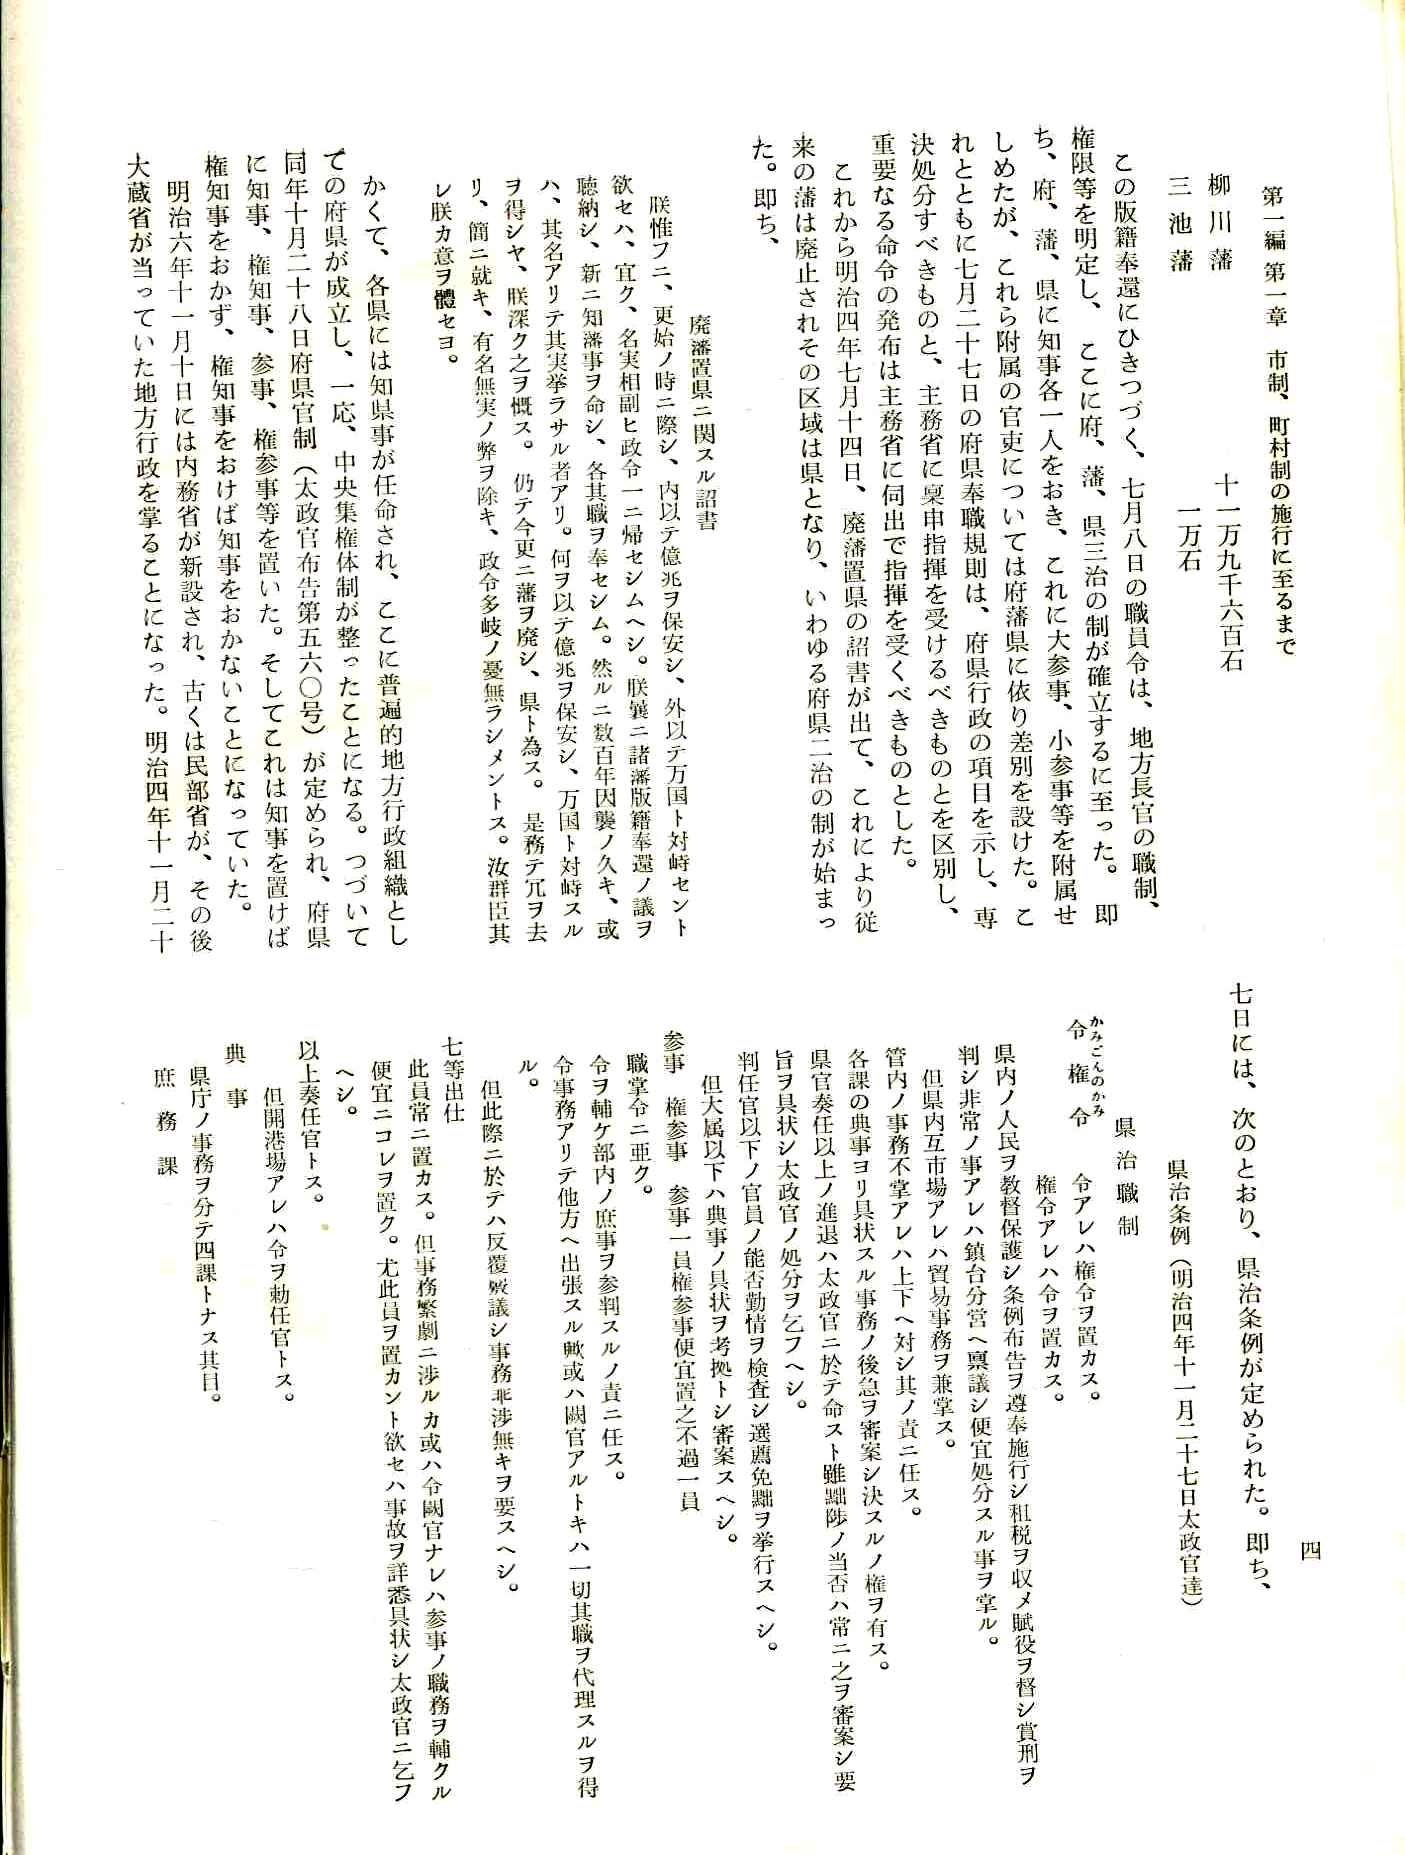 第一編 第一章　市制、町村制の施行に至るまで
四
柳川藩　十一万九千六百石
三池藩　一万石
この版籍奉還にひきつづく、七月八日の職員令は、地方長官の職制、
権限等を明定し、ここに府、藩、県三治の制が確立するに至った。即
ち、府、藩、県に知事各一人をおき、これに大参事、小参事等を附属せ
しめたが、これら附属の官吏については府藩県に依り差別を設けた。こ
れとともに七月二十七日の府県奉職規則は、府県行政の項目を示し、専
決処分すべきものと、主務省に稟申指揮を受けるべきものとを区別し、
重要なる命令の発布は主務省に伺出で指揮を受くべきものとした。
これから明治四年七月十四日、廃藩置県の詔書が出て、これにより従
来の藩は廃止されその区域は県となり、いわゆる府県二治の制が始まっ
た。即ち、
廃藩置県ニ関スル詔書
朕惟フニ、更始ノ時ニ際シ、内以テ億兆ヲ保安シ、外以テ万国ト対峙セント
欲セハ、宜ク、名実相副ヒ政令一ニ帰セシムヘシ。朕曩ニ諸藩版籍奉還ノ議ヲ
聴納シ、新ニ知藩事ヲ命シ、各其職ヲ奉セシム。然ルニ数百年因襲ノ久キ、或
ハ、其名アリテ其実挙ラサル者アリ。何ヲ以テ億兆ヲ保安シ、万国ト対峙スル
ヲ得シヤ、朕深ク之ヲ慨ス。仍テ今更ニ藩ヲ廃シ、県ト為ス。是務テ冗ヲ去
リ、簡ニ就キ、有名無実ノ弊ヲ除キ、政令多岐ノ憂無ラシメントス。汝群臣其
レ朕カ意ヲ體セヨ。
かくて、各県には知県事が任命され、ここに普遍的地方行政組織とし
ての府県が成立し、一応、中央集権体制が整ったことになる。つづいて
同年十月二十八日府県官制（太政官布告第五六〇号）が定められ、府県
に知事、権知事、参事、権参事等を置いた。そしてこれは知事を置けば
権知事をおかず、権知事をおけば知事をおかないことになっていた。
明治六年十一月十日には内務省が新設され、古くは民部省が、その後
大蔵省が当っていた地方行政を掌ることになった。明治四年十一月二十
七日には、次のとおり、県治条例が定められた。即ち、
県治条例（明治四年十一月二十七日太政官達）
県治職制
かみごんのかみ
令権令　令アレハ権令ヲ置カス。
権令アレハ令ヲ置カス。
県内ノ人民ヲ教督保護シ条例布告ヲ遵奉施行シ租税ヲ収メ賦役ヲ督シ賞刑ヲ
判シ非常ノ事アレハ鎮台分営ヘ稟議シ便宜処分スル事ヲ掌ル。
但県内互市場アレハ貿易事務ヲ兼掌ス。
管内ノ事務不掌アレハ上下ヘ対シ其ノ責ニ任ス。
各課の典事ヨリ具状スル事務ノ後急ヲ審案シ決スルノ権ヲ有ス。
県官奏任以上ノ進退ハ太政官ニ於テ命スト雖黜陟ノ当否ハ常ニ之ヲ審案シ要
旨ヲ具状シ太政官ノ処分ヲ乞フヘシ。
判任官以下ノ官員ノ能否勤情ヲ検査シ選薦免黜ヲ挙行スヘシ。
但大属以下ハ典事ノ具状ヲ考拠トシ審案スヘシ。
参事　権参事　参事一員権参事便宜置之不過一員
職掌令ニ亜ク。
令ヲ輔ケ部内ノ庶事ヲ参判スルノ責ニ任ス。
令事務アリテ他方ヘ出張スル歟或ハ闕官アルトキハ一切其職ヲ代理スルヲ得
ル。
但此際ニ於テハ反覆議シ事務渉無キヲ要スヘシ。
七等出仕
此員常ニ置カス。但事務繁劇ニ渉ルカ或ハ令闕官ナレハ参事ノ職務ヲ輔クル
便宜ニコレヲ置ク。尤此員ヲ置カント欲セハ事故ヲ詳悉具状シ太政官ニ乞フ
ヘシ。
以上奏任官トス。
但開港場アレハ令ヲ勅任官トス。
典事
県庁ノ事務ヲ分テ四課トナス其目。
庶務課